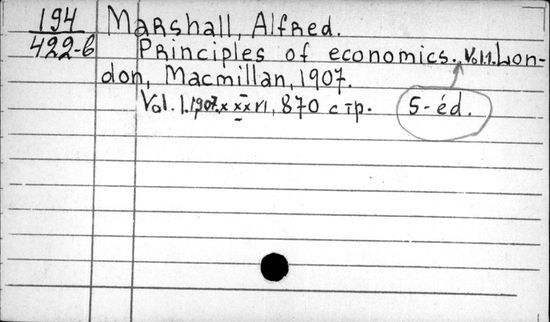 194 Marshall, Alfred.
422-6 Principles of economics. Vol.1. Lon-
don, Macmillan, 1907.
Vol. 1. 1907. xxxvi, 870 стр. 5-éd.